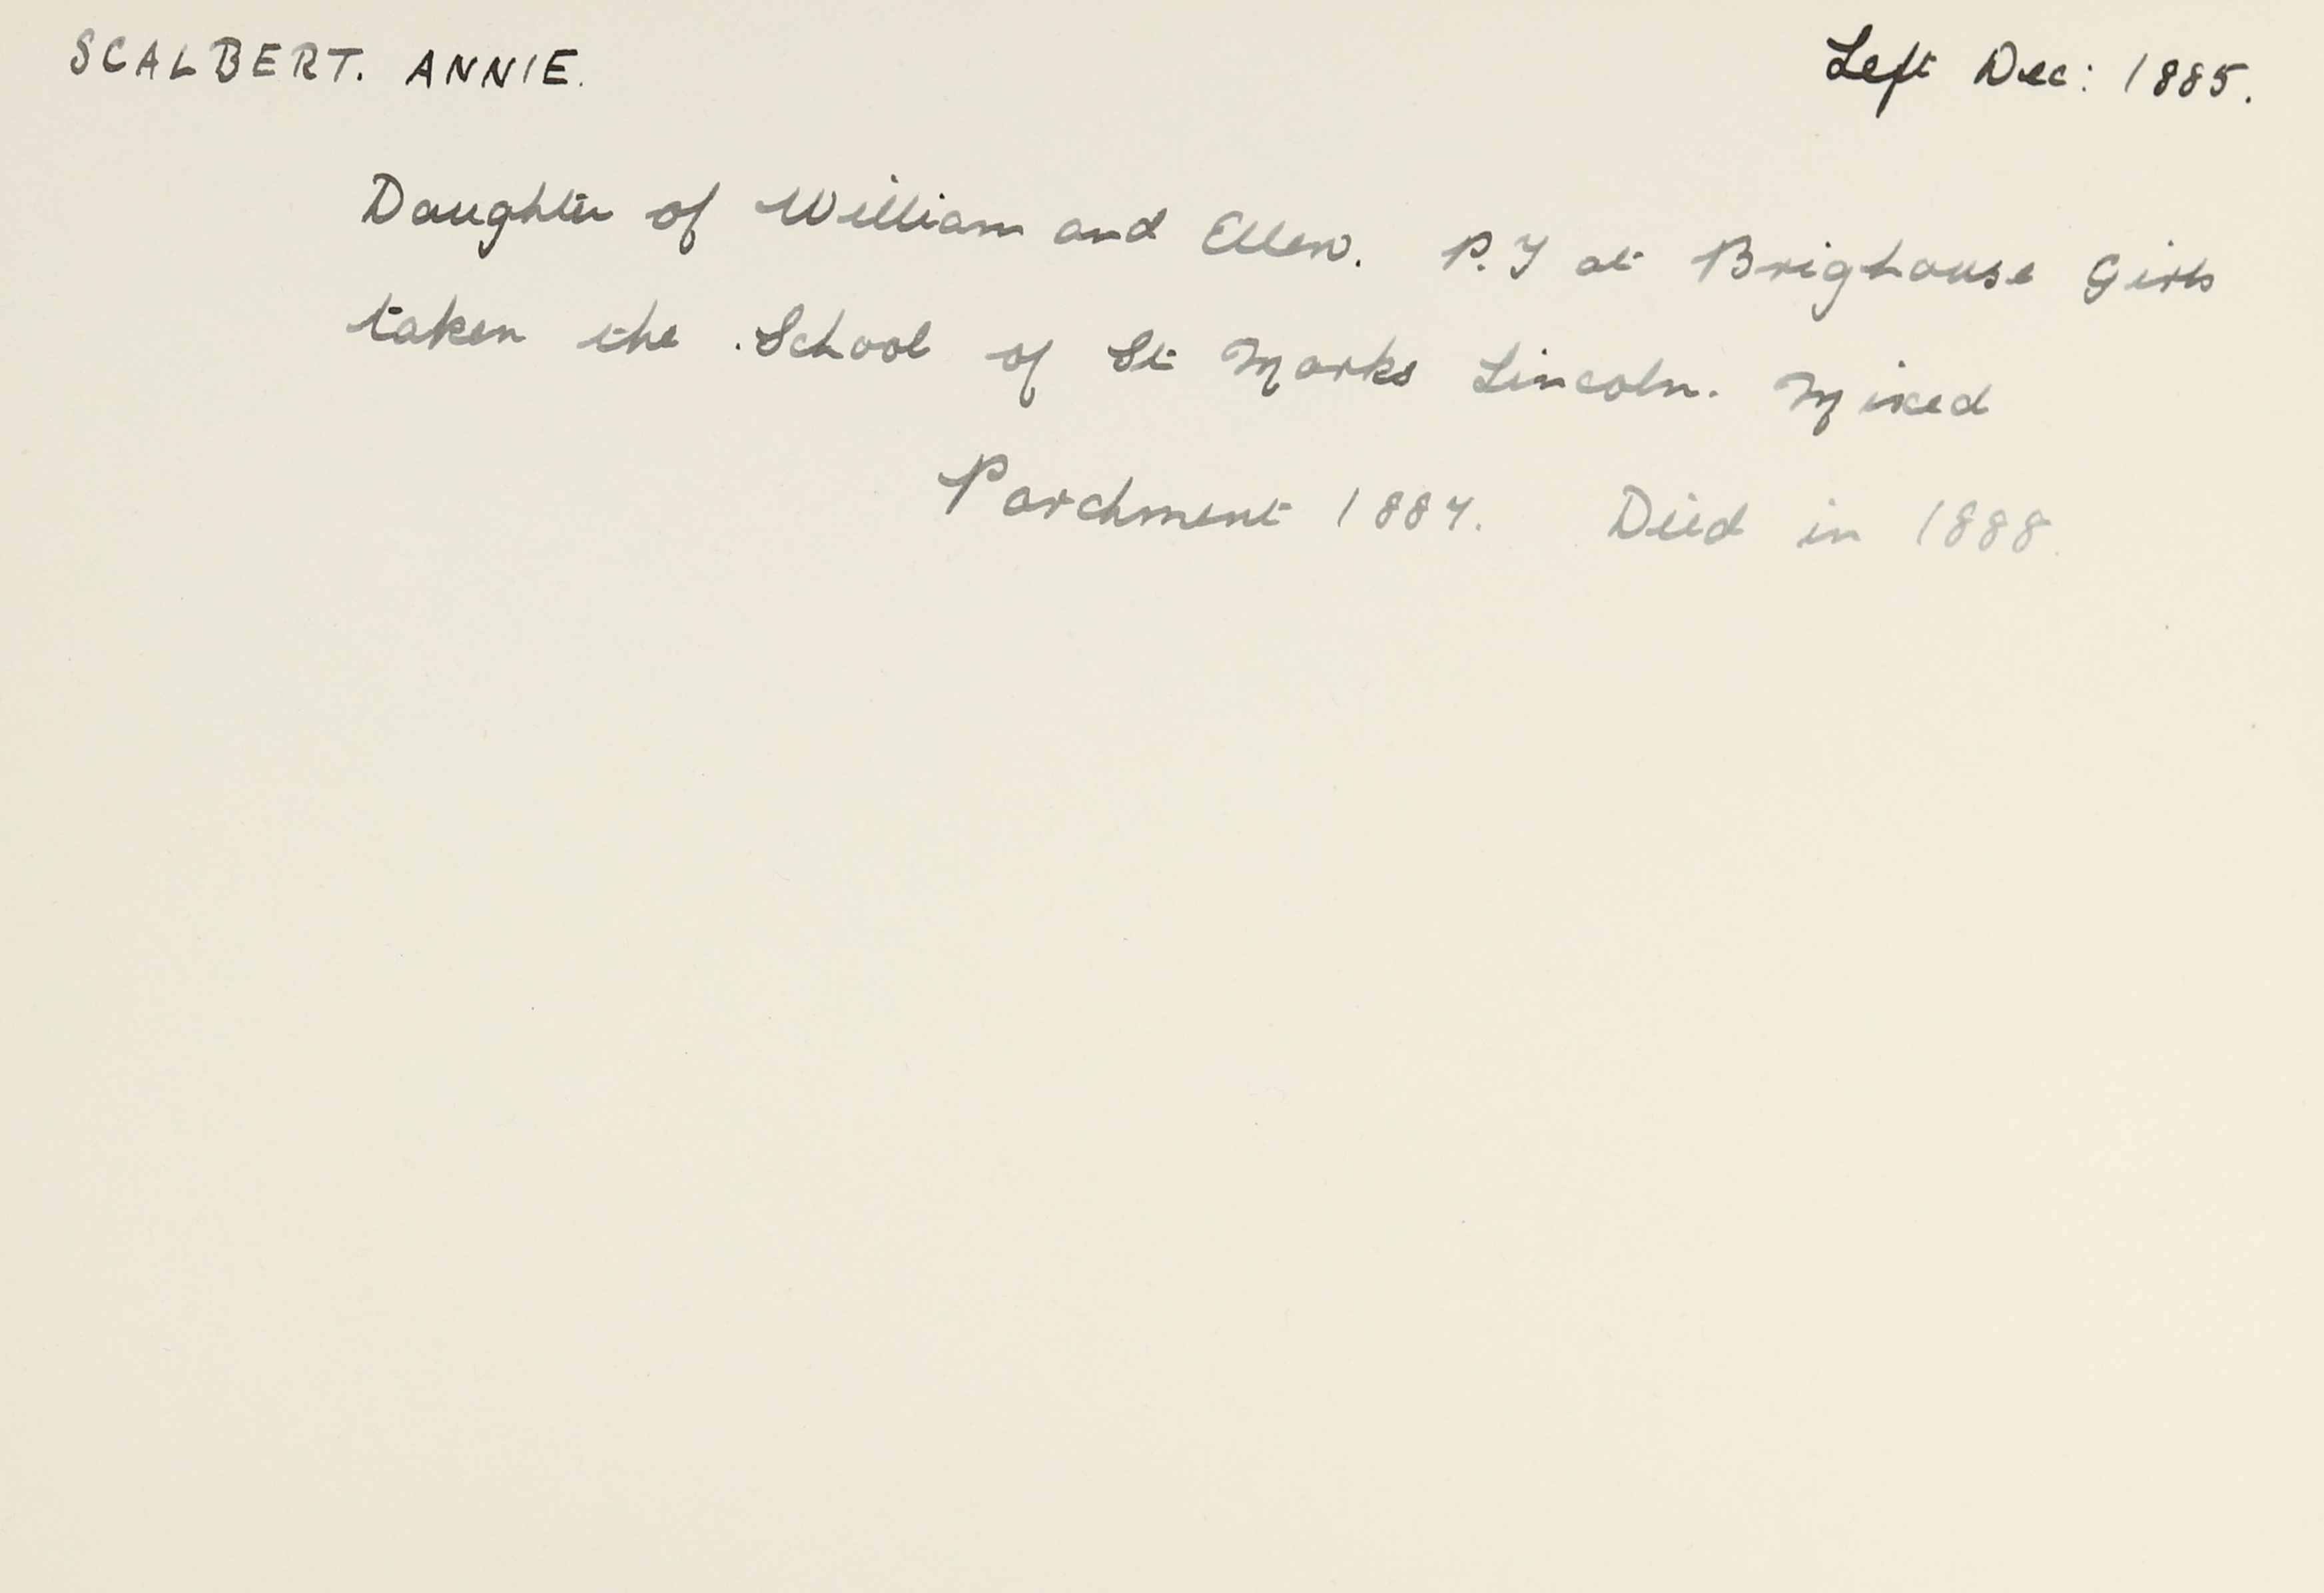 SCALBERT. ANNIE. Left Dec: 1885.
Daughter of William and Ellen. P.T at Brighouse Girls
taken the School of St Marks Lincoln. Mixed
Parchment 1887. Died in 1888.